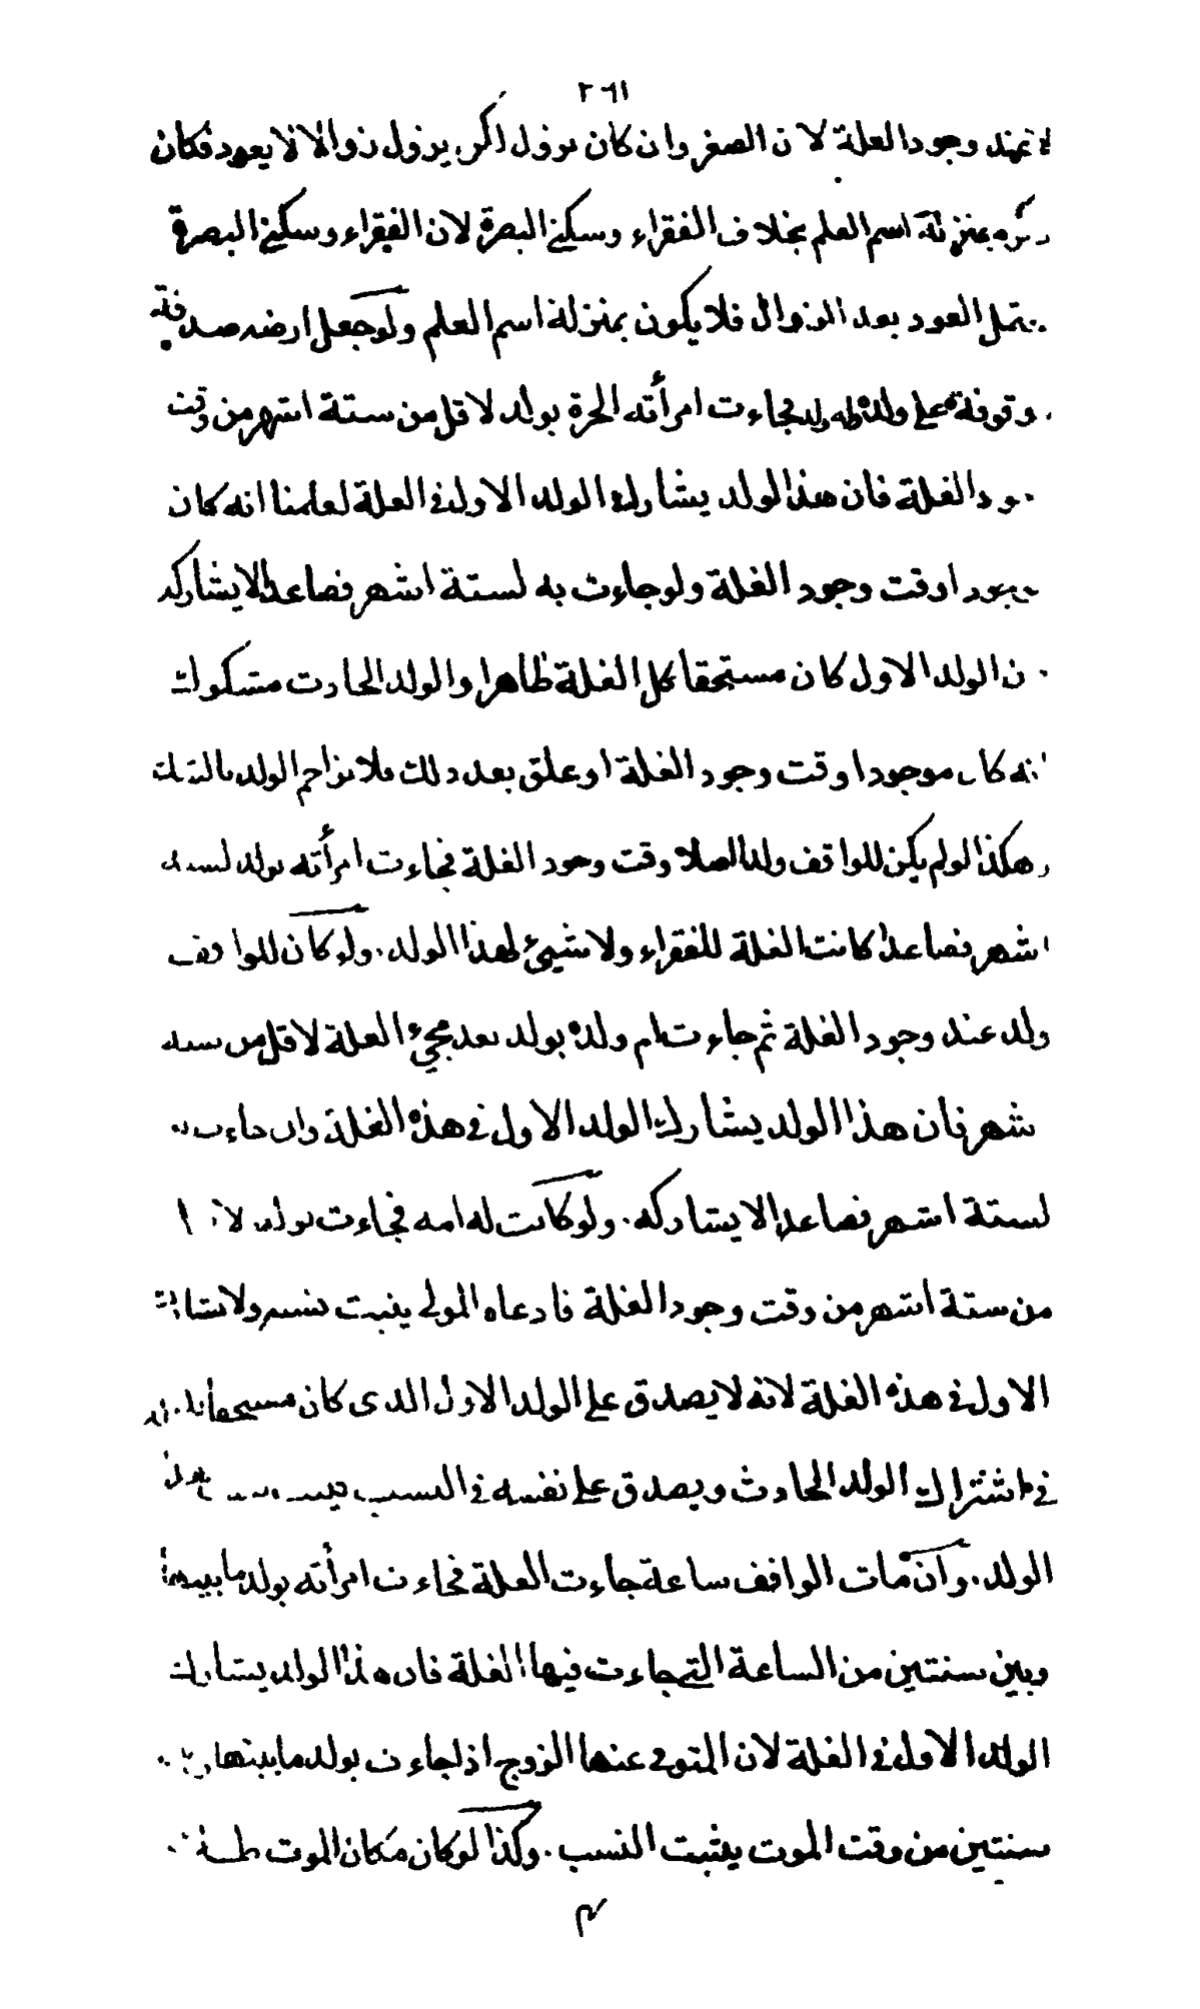 ٢٦١
وجود الغلة لان الصغر وان كان يزول لكن يزول زوالا لا يعود فكان
ذكره بمنزلة اسم العلم بخلاف الفقراء وسكنى البصرة لان الفقراء وسكنى البصرة
يحتمل العود بعد الزوال فلا يكون بمنزلة اسم العلم ولو جعل ارضه صدقة
موقوفة على ولده وله ولد فجاءت امرأته الحرة بولد لاقل من ستة اشهر من وقت
وجود الغلة فان هذا الولد يشارك الولد الاول في الغلة لعلمنا انه كان
موجودا وقت وجود الغلة ولو جاءت به لستة اشهر فصاعدا لا يشاركه
لان الولد الاول كان مستحقا كل الغلة ظاهرا والولد الحادث مشكوك
انه كان موجودا وقت وجود الغلة او علق بعد ذلك فلا يزاحم الولد بالشك
وهكذا لو لم يكن للواقف ولد اصلا وقت وجود الغلة فجاءت امرأته بولد لستة
اشهر فصاعدا كانت الغلة للفقراء ولا شيئ لهذا الولد. ولو كان للواقف
ولد عند وجود الغلة ثم جاءت ام ولده بولد بعد مجيء الغلة لاقل من ستة
شهر فان هذا الولد يشارك الولد الاول في هذه الغلة وان جاءت به
لستة اشهر فصاعدا لا يشاركه. ولو كانت له امه فجاءت بولد
من ستة اشهر من وقت وجود الغلة فادعاه المولى يثبت نسبه ولا يشارك
الاول في هذه الغلة لانه لا يصدق على الولد الاول الذى كان مستحقا
في اشتراك الولد الحادث ويصدق على نفسه في النسب
الولد. وان مات الواقف ساعة جاءت الغلة فجاءت امرأته بولد ما بينها
وبين سنتين من الساعة التي جاءت فيها الغلة فان هذا الولد يشارك
الولد الاول في الغلة لان المتوفى عنها الزوج اذا جاءت بولد ما بينها
سنتين من وقت الموت يثبت النسب. وكذا لو كان مكان الموت